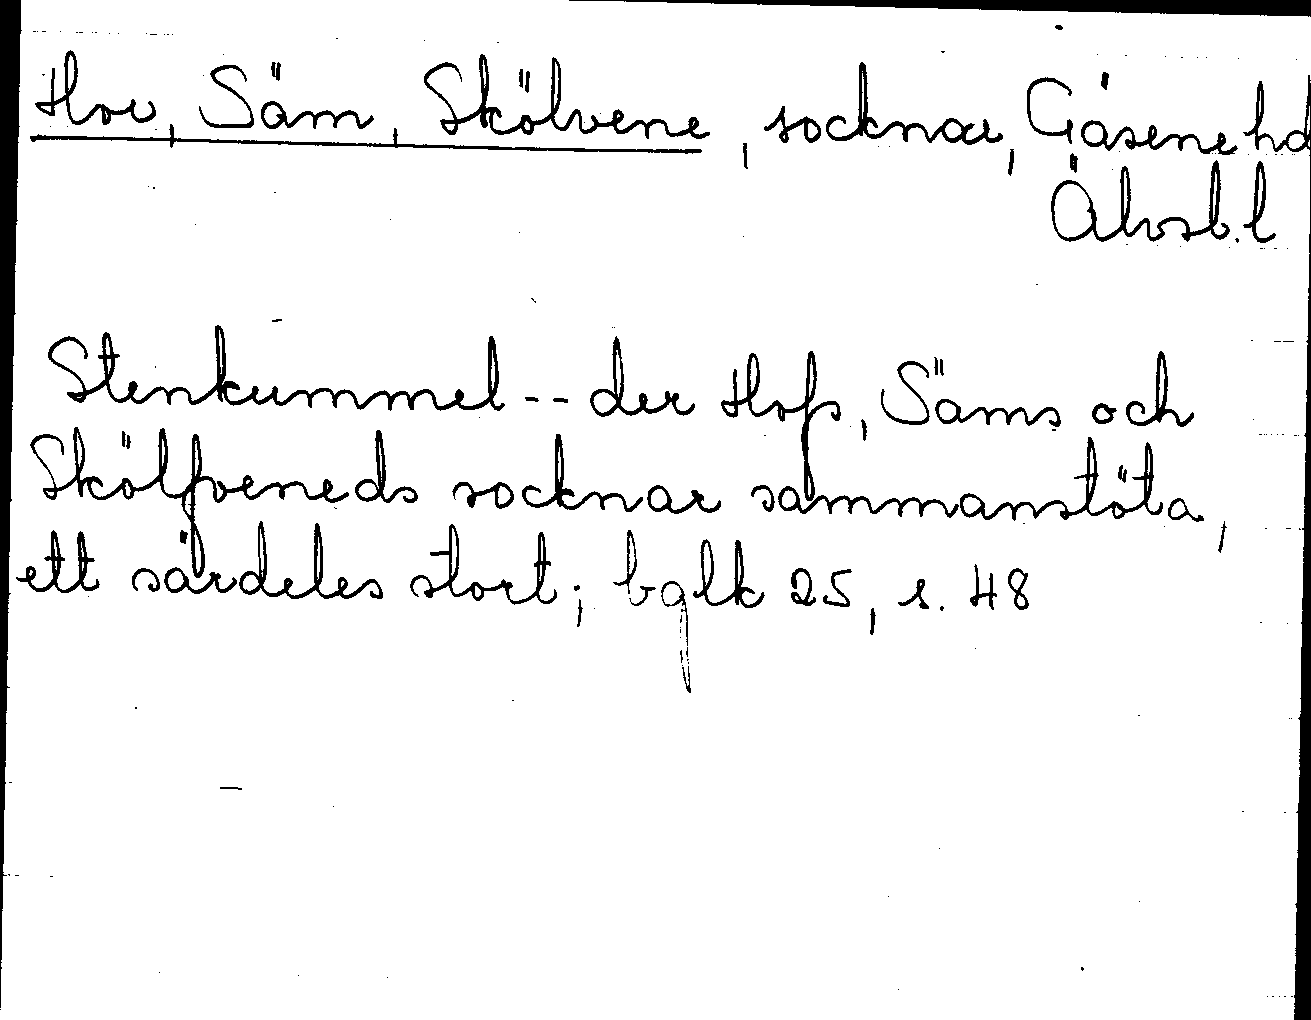 Hov, Säm, Skölvene, socknar, Gäsene hd
Älvsb.l
Stenkummel -- der Hofs, Säms och
Skölfveneds socknar sammanstöta,
ett särdeles stort; bglk 25, s. 48